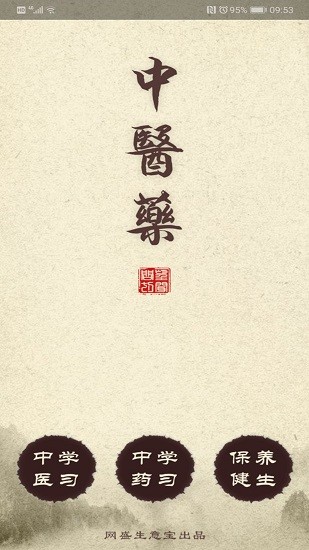 HD 4G 95% 09:53
中醫藥
中医
学习
中药
学习
保健
养生
网盛生意宝出品